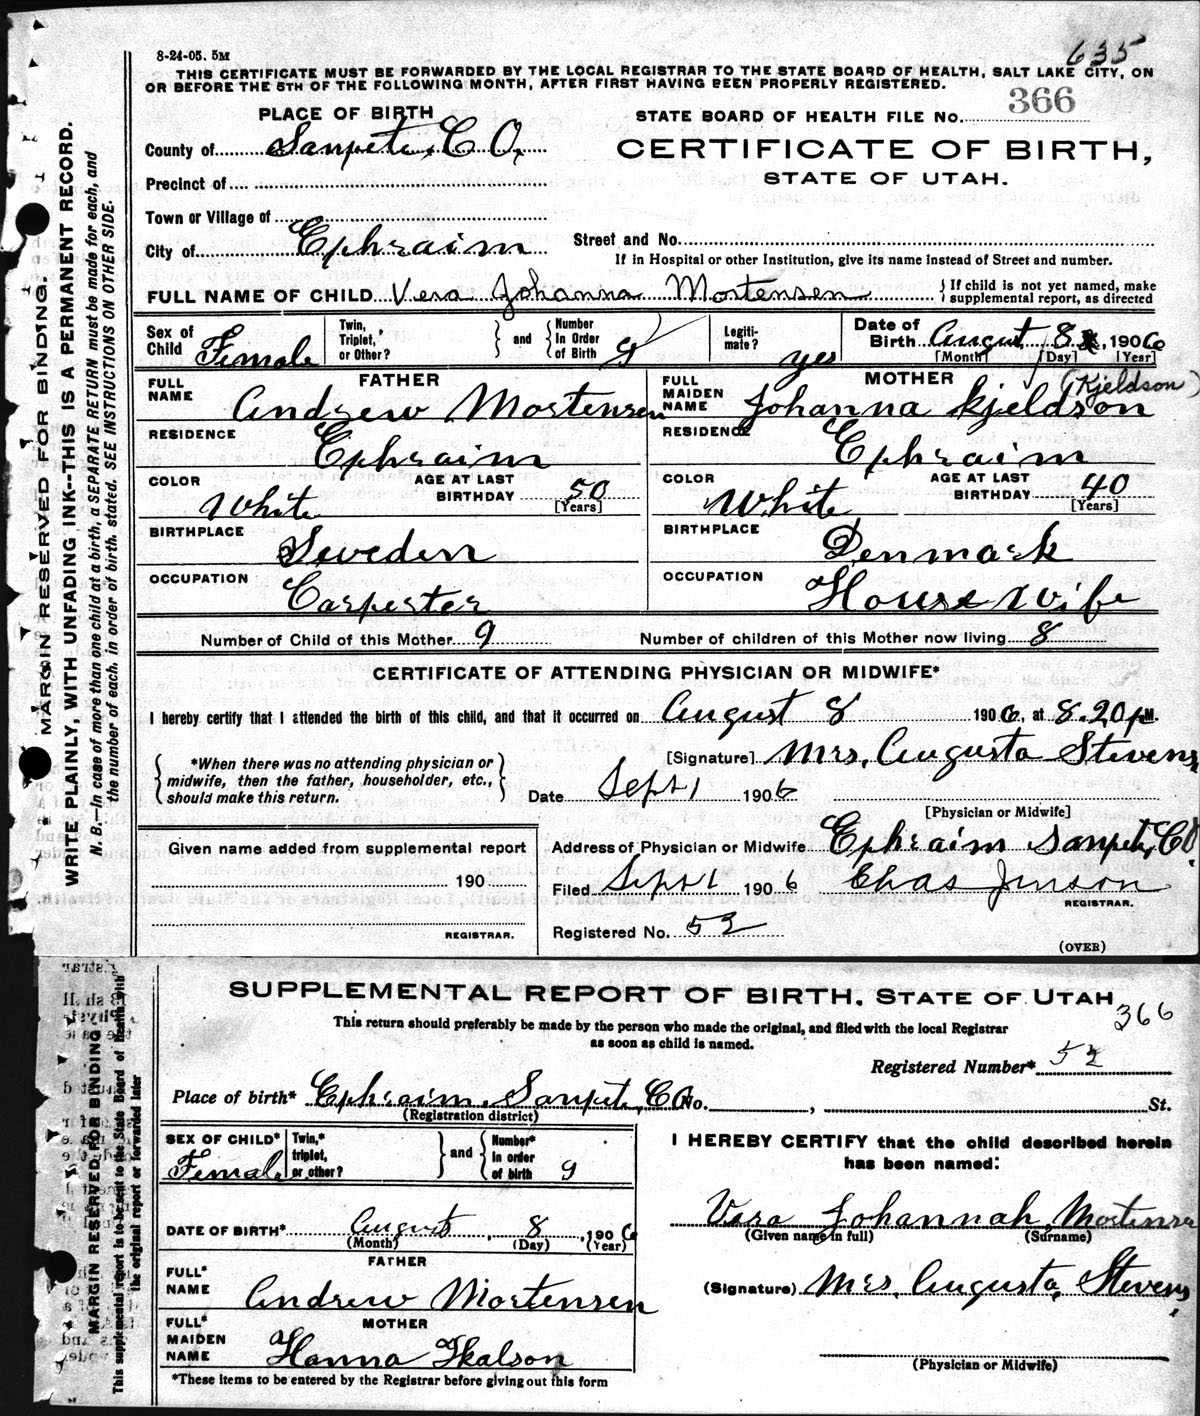 8-24-05. 5M
635
THIS CERTIFICATE MUST BE FORWARDED BY THE LOCAL REGISTRAR TO THE STATE BOARD OF HEALTH, SALT LAKE CITY, ON
OR BEFORE THE 5TH OF THE FOLLOWING MONTH, AFTER FIRST HAVING BEEN PROPERLY REGISTERED.
PLACE OF BIRTH
STATE BOARD OF HEALTH FILE NO. 366
County of Sanpete, C O,
CERTIFICATE OF BIRTH,
STATE OF UTAH.
Precinct of
Town or Village of
City of Ephraim
Street and No.
If in Hospital or other Institution, give its name instead of Street and number.
FULL NAME OF CHILD Vera Johanna Mortensen { If child is not yet named, make supplemental report, as directed
Sex of Child Female Twin, Triplet, or Other? } and { Number In Order of Birth 9 Legitimate? yes Date of Birth August 8, 1906
[Month] [Day] [Year]
FATHER
MOTHER (Kjeldson)
FULL NAME Andrew Mortensen
FULL MAIDEN NAME Johanna Kjeldson
RESIDENCE Ephraim
RESIDENCE Ephraim
COLOR White AGE AT LAST BIRTHDAY 50 [Years]
COLOR White AGE AT LAST BIRTHDAY 40 [Years]
BIRTHPLACE Sweden
BIRTHPLACE Denmark
OCCUPATION Carpenter
OCCUPATION House Wife
Number of Child of this Mother 9 Number of children of this Mother now living 8
CERTIFICATE OF ATTENDING PHYSICIAN OR MIDWIFE*
I hereby certify that I attended the birth of this child, and that it occurred on August 8 1906, at 8.20 p M.
{ *When there was no attending physician or midwife, then the father, householder, etc., should make this return. }
[Signature] Mrs. Augusta Stevens
Date Sept 1 1906
[Physician or Midwife]
Given name added from supplemental report
Address of Physician or Midwife Ephraim Sanpete, CO.
190
Filed Sept 1 1906 Chas Jenson
REGISTRAR.
REGISTRAR.
Registered No. 52
(OVER)
MARGIN RESERVED FOR BINDING.
WRITE PLAINLY, WITH UNFADING INK--THIS IS A PERMANENT RECORD.
N. B.—In case of more than one child at a birth, a SEPARATE RETURN must be made for each, and
the number of each, in order of birth, stated. SEE INSTRUCTIONS ON OTHER SIDE.
SUPPLEMENTAL REPORT OF BIRTH. STATE OF UTAH
366
This return should preferably be made by the person who made the original, and filed with the local Registrar
as soon as child is named.
Registered Number* 52
Place of birth* Ephraim, Sanpete, CO. No. , St.
(Registration district)
SEX OF CHILD* Female Twin,* triplet, or other? } and { Number* In order of birth 9
I HEREBY CERTIFY that the child described herein
has been named:
Vera Johannah, Mortensen
(Given name in full) (Surname)
DATE OF BIRTH* August, 8, 1906
(Month) (Day) (Year)
FATHER
FULL* NAME Andrew Mortensen
(Signature) Mrs. Augusta, Stevens,
MOTHER
FULL* MAIDEN NAME Hanna
(Physician or Midwife)
*These items to be entered by the Registrar before giving out this form
MARGIN RESERVED FOR BINDING
This supplemental report is to be sent to the State Board of Health with
the original report or forwarded later